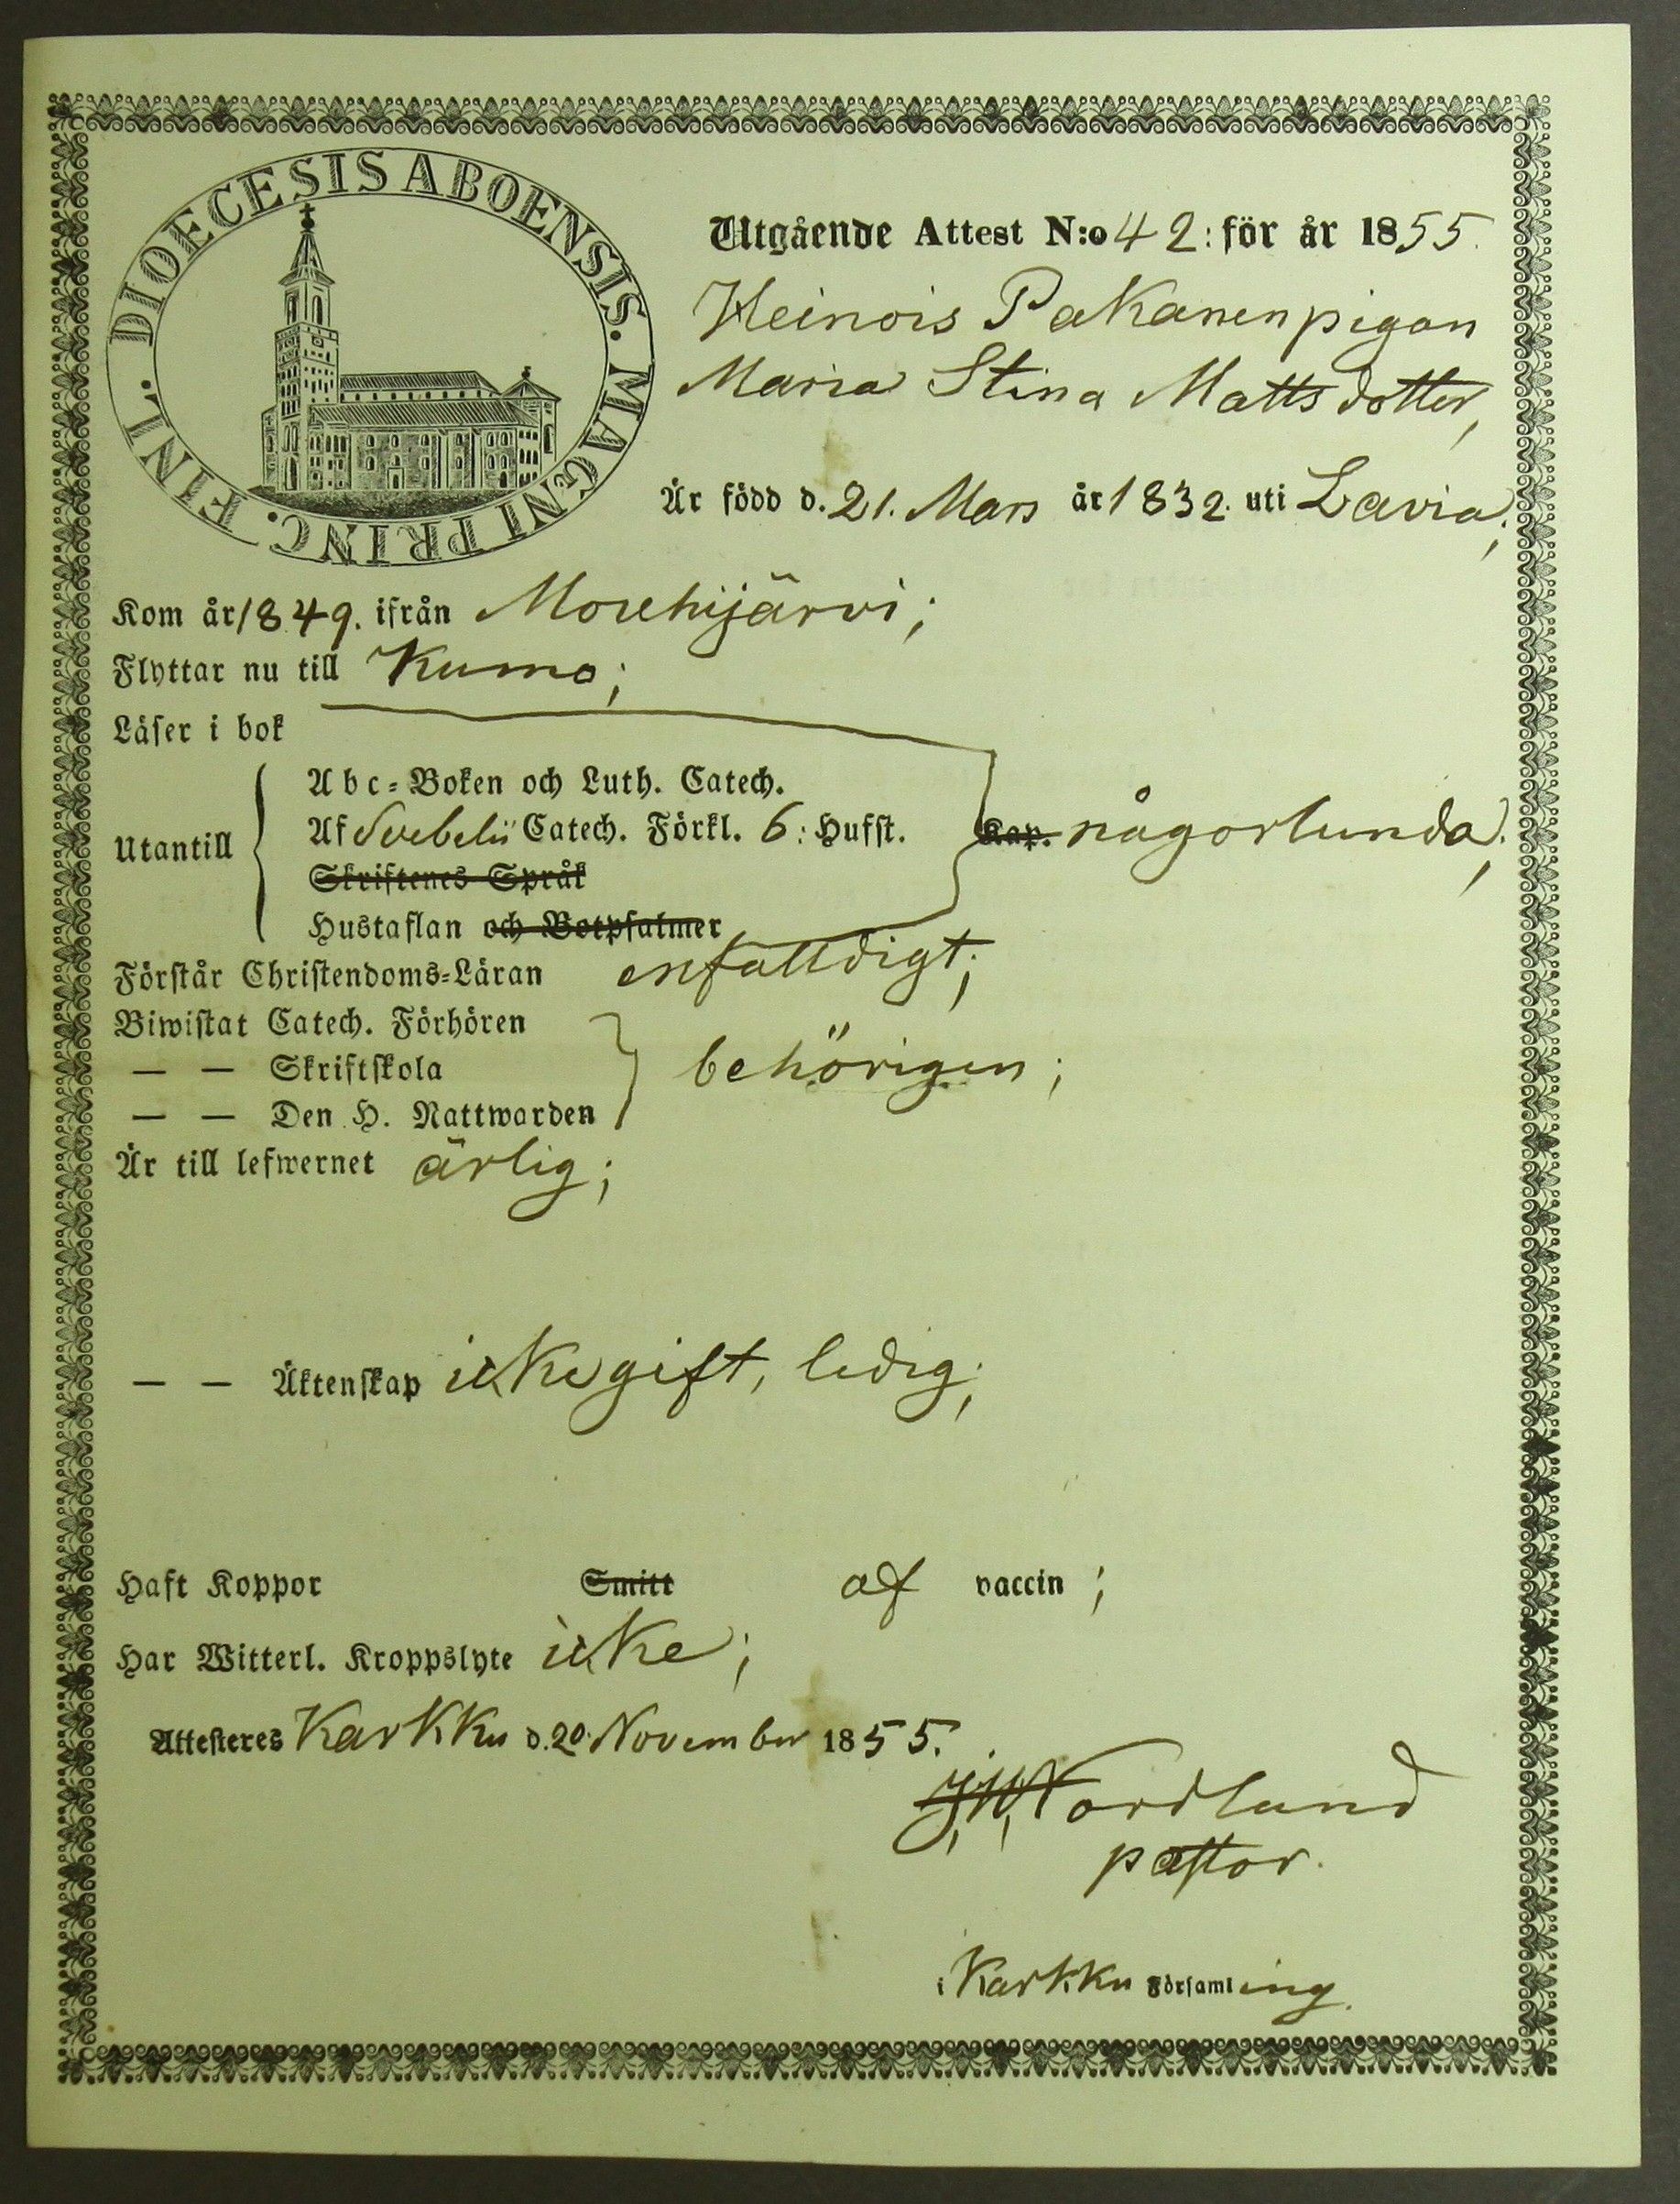 DIOECESIS ABOENSIS. MAGNI PRINC. FINL.
Utgående Attest N:o 42: för år 1855.
Heinois Pakanen pigan
Maria Stina Matts dotter,
Är född d. 21. Mars år 1832. uti Lavia;
Kom år 1849. ifrån Mouhijärvi;
Flyttar nu till Kumo;
Läser i bok
Utantill
Abc-Boken och Luth. Catech.
Af Svebelii Catech. Förkl. 6: Hufst. Kap. någorlunda;
Skriftenes Språk
Hustaflan och Botpsalmer
Förstår Christendoms-Läran enfalldigt;
Biwistat Catech. Förhören
— — Skriftskola behörigen;
— — Den H. Nattwarden
Är till lefwernet ärlig;
— — Äktenskap icke gift, ledig;
Haft Koppor Smitt af vaccin;
Har Witterl. Kroppslyte icke;
Attesteres Karkku d. 20. November 1855.
Nordlund
pastor.
i Karkku Församling.